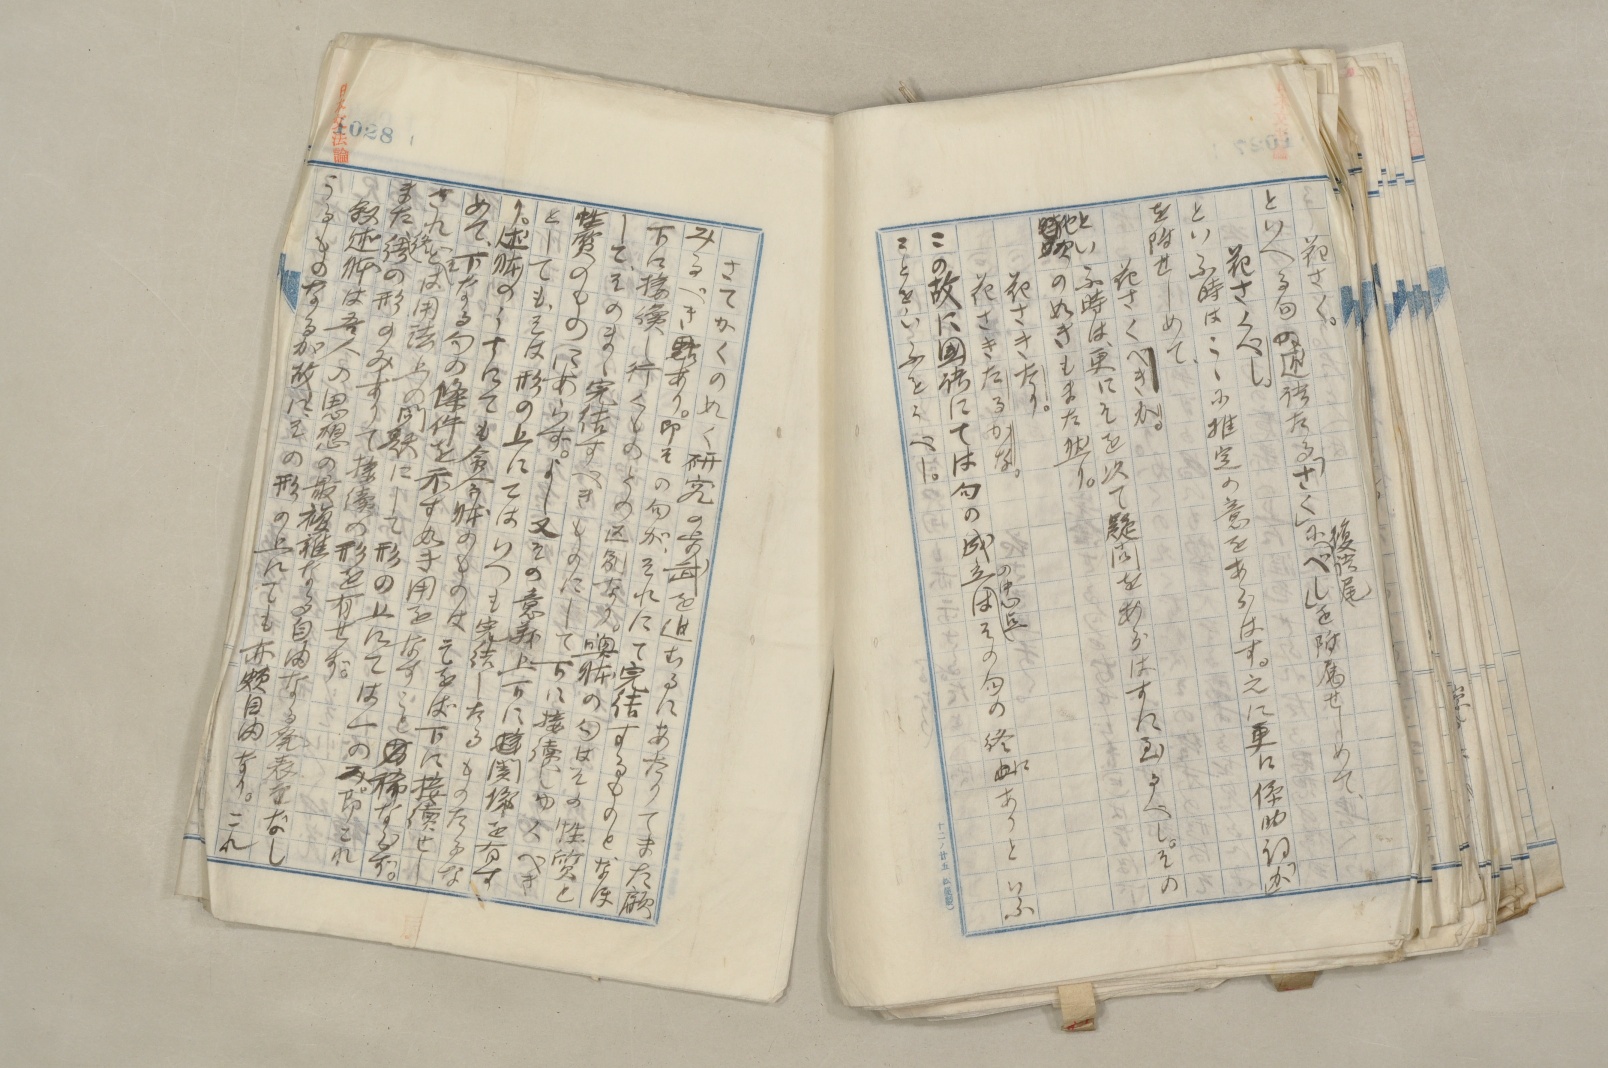 花さく。
といへる句の述語たる「さく」に「べし」を附属せしめて、
複語尾
花さくべし
といふ時はこゝに推定の意をあらはす。之に更に係助詞「か」
を附せしめて、
花さくべきか。
といふ時は、更にそを以て疑問をあらはすに至るべし。その
の如きもまた然り。
花さきたり。
花さきたるかな。
この故に国語にては句の成立はその句の終止にありといふ
ことをいふをうべし。
1027
1028
日本文法論
さてかくの如く研究の歩武を進むるにあたりてまた顧
みるべき點あり。即その句が、それにて完結するものとなほ
下に接續し行くものとの区別なり。喚体の句はその性質と
して、そのまゝ完結すべきものにして下に接續しゆくべき
性質のものにあらず。よし又その意義上下に関係を有す
としても、そは形の上にてはいつも完結したるものたらな
り。述体のうちにても命令体のものは そをば下に接續せし
めて、下なる句の條件を示す如き用をなすこと稀なるが、
されどそは用法上の問題にして形の上にては一のみ、即これ
また終の形のみありて接續の形を有せず。
叙述体は吾人の思想の最複雑なる自由なる発表をなし
うるものなるが故に、その形の上にても亦頗自由なり。これ